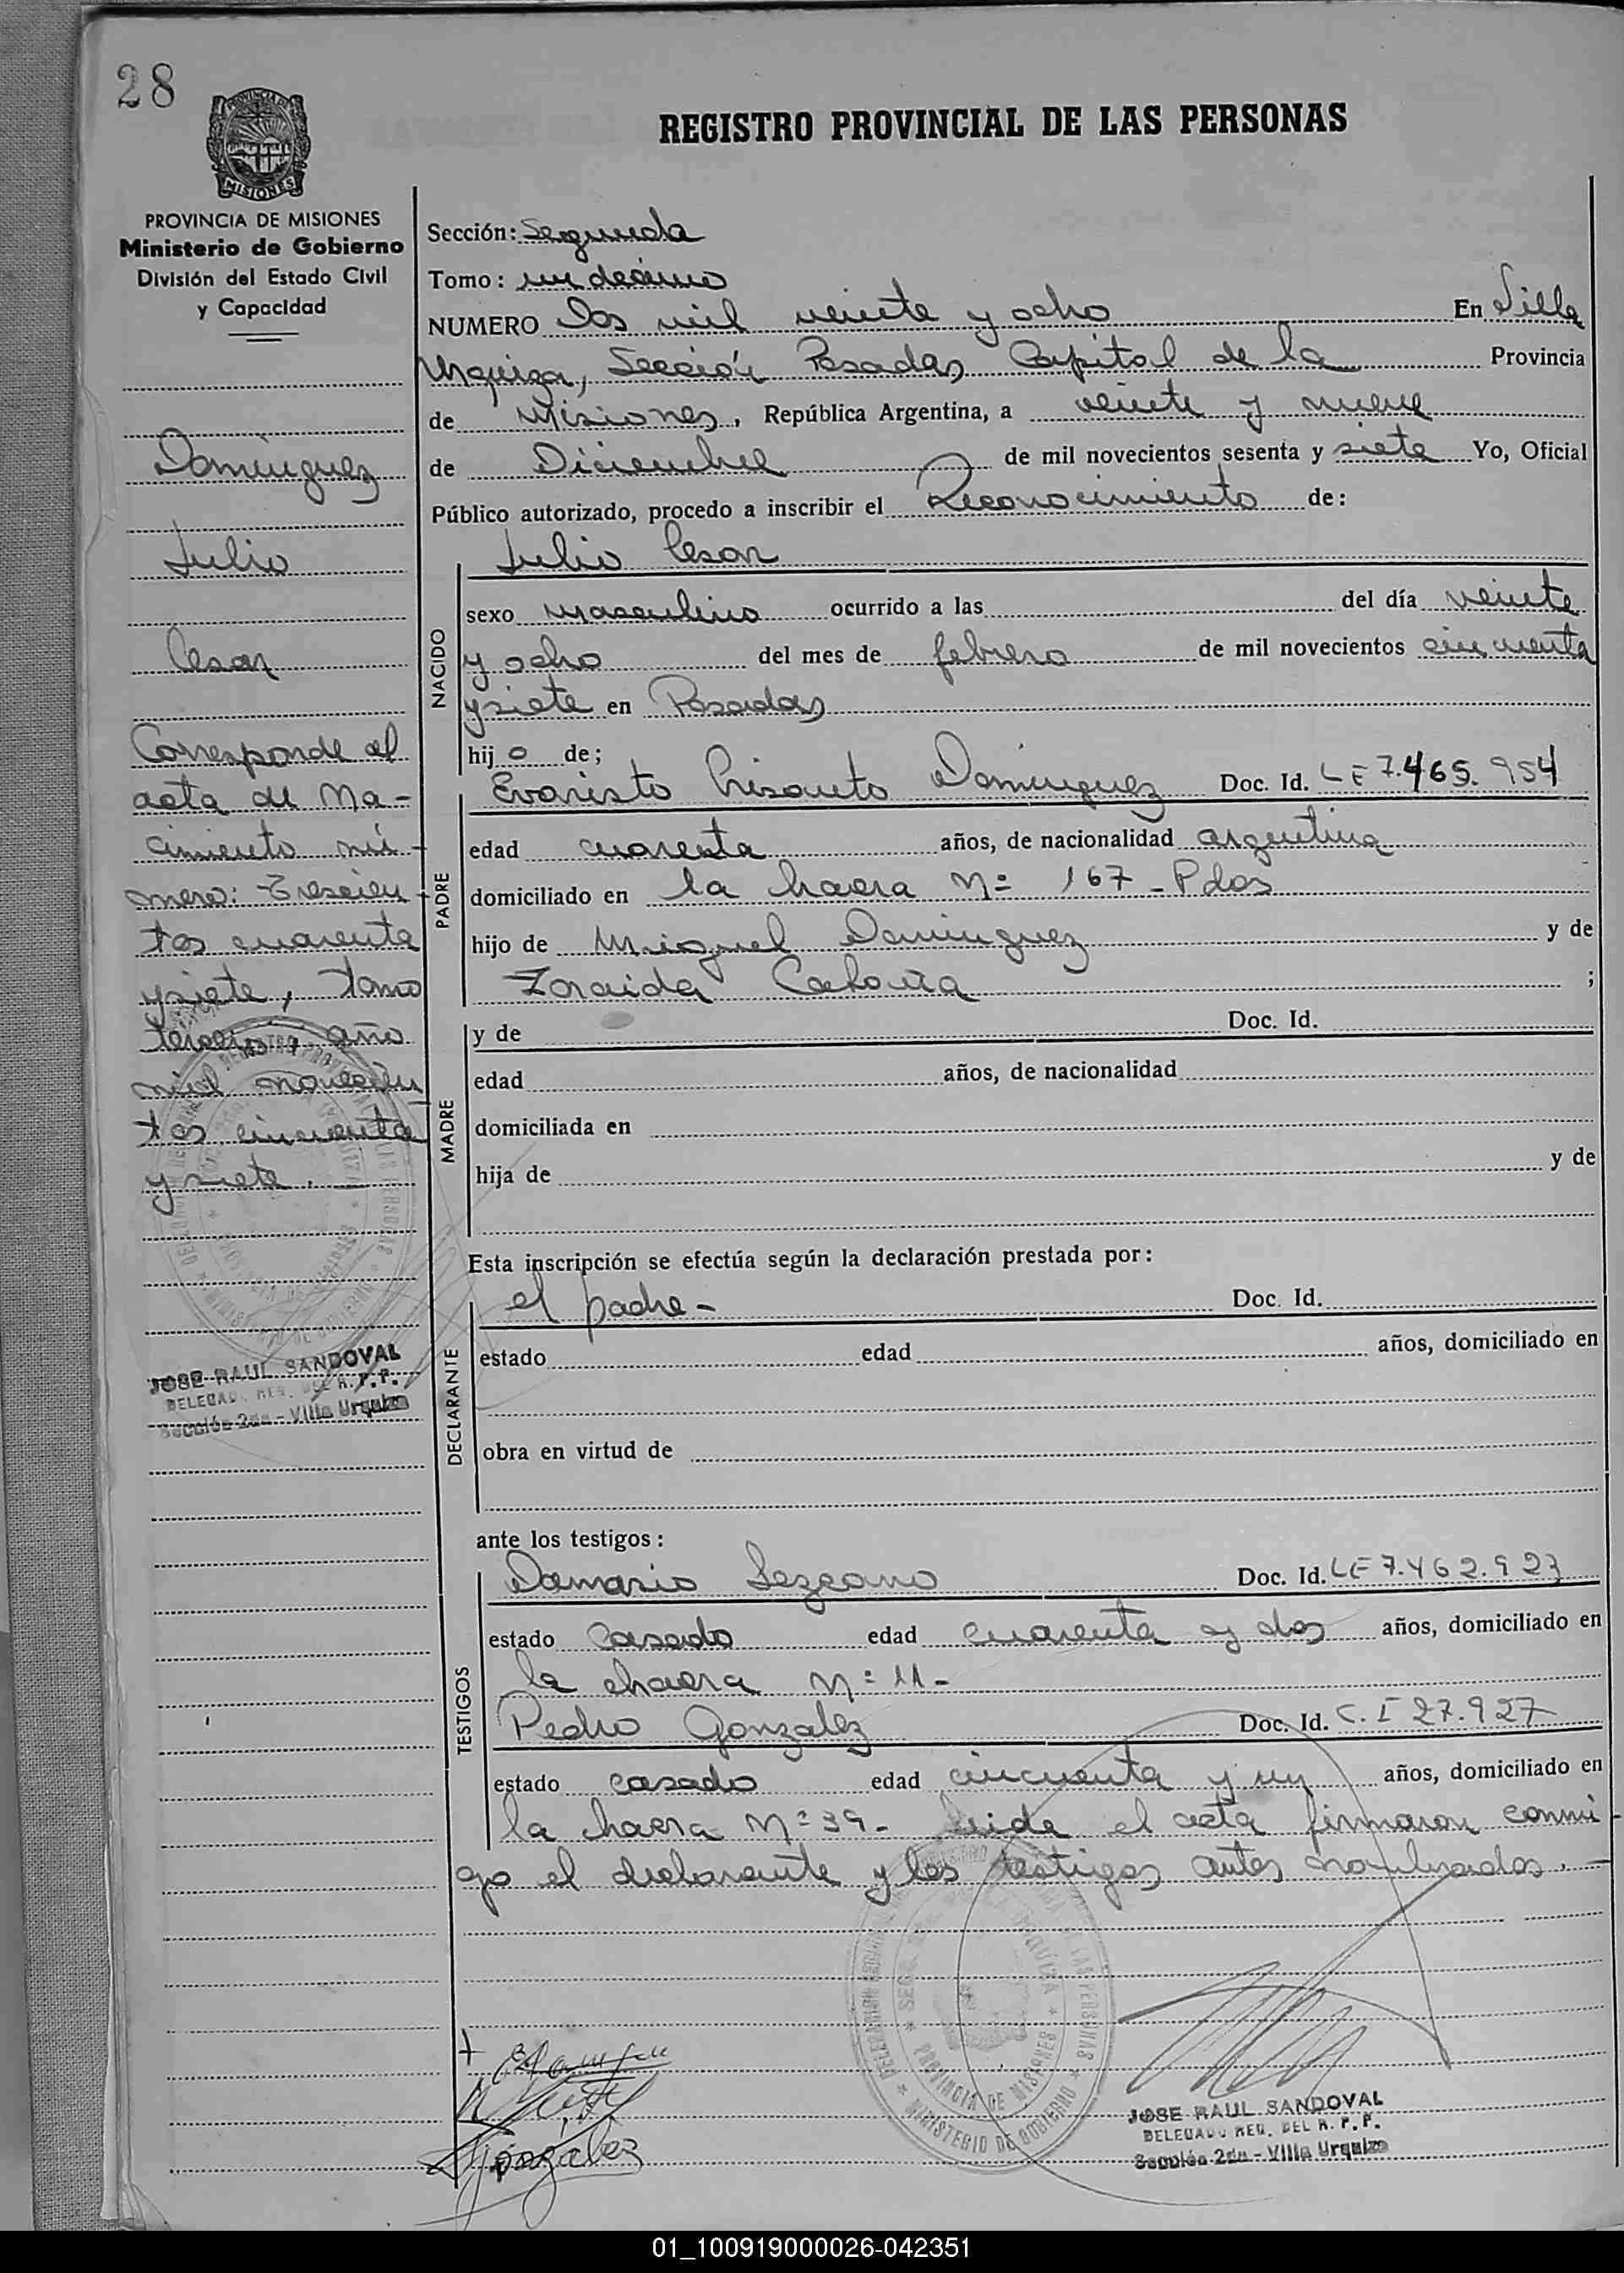 28
REGISTRO PROVINCIAL DE LAS PERSONAS
PROVINCIA DE MISIONES
MISIONES
PROVINCIA DE MISIONES
Ministerio de Gobierno
División del Estado Civil
y Capacidad
Dominguez
Julio
Cesar
Corresponde al
acta de Na-
cimiento nú-
mero: Trescien
tos cuarenta
y siete, tomo
tercero, año
mil novecien
tos cincuenta
y siete.
JOSE RAUL SANDOVAL
DELEGADO REG. DEL R. P. P.
Sección 2da - Villa Urquiza
Sección: Segunda
Tomo: un decimo
NUMERO Dos mil veinte y ocho En Villa
Urquiza, Sección Posadas Capital de la Provincia
de Misiones, República Argentina, a veinte y nueve
de Diciembre de mil novecientos sesenta y siete Yo, Oficial
Público autorizado, procedo a inscribir el Reconocimiento de:
NACIDO
Julio Cesar
sexo masculino ocurrido a las del día veinte
y ocho del mes de febrero de mil novecientos cincuenta
y siete en Posadas
hijo de;
PADRE
Evaristo Crisanto Dominguez Doc. Id. LE 7.465.954
edad cuarenta años, de nacionalidad argentina
domiciliado en la chacra Nº 167 - Pdas
hijo de Miguel Dominguez y de
Zoraida ;
MADRE
y de Doc. Id.
edad años, de nacionalidad
domiciliada en
hija de y de
Esta inscripción se efectúa según la declaración prestada por:
DECLARANTE
el padre - Doc. Id.
estado edad años, domiciliado en
obra en virtud de
ante los testigos:
TESTIGOS
Damasio Lezcano Doc. Id. LE 7.462.923
estado casado edad cuarenta y dos años, domiciliado en
la chacra Nº 11 -
Pedro Gonzalez Doc. Id. C. I 27.927
estado casado edad cincuenta y un años, domiciliado en
la chacra Nº 39 - Leida el acta firmaron conmi-
go el declarante y los testigos antes nombrados. -
Gonzalez
PROVINCIA DE MISIONES
MINISTERIO DE GOBIERNO
JOSE RAUL SANDOVAL
DELEGADO REG. DEL R. P. P.
Sección 2da - Villa Urquiza
01_100919000026-042351